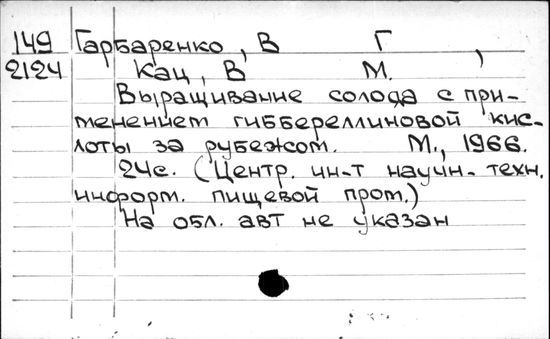 149 Гарбаренко, В Г ,
2124 Кац, В М.
Выращивание солода с при-
менением гиббереллиновой кис-
лоты за рубежом. М., 1966.
24с. (Центр. ин-т научн.-техн.
информ. пищевой пром.)
На обл. авт не указан